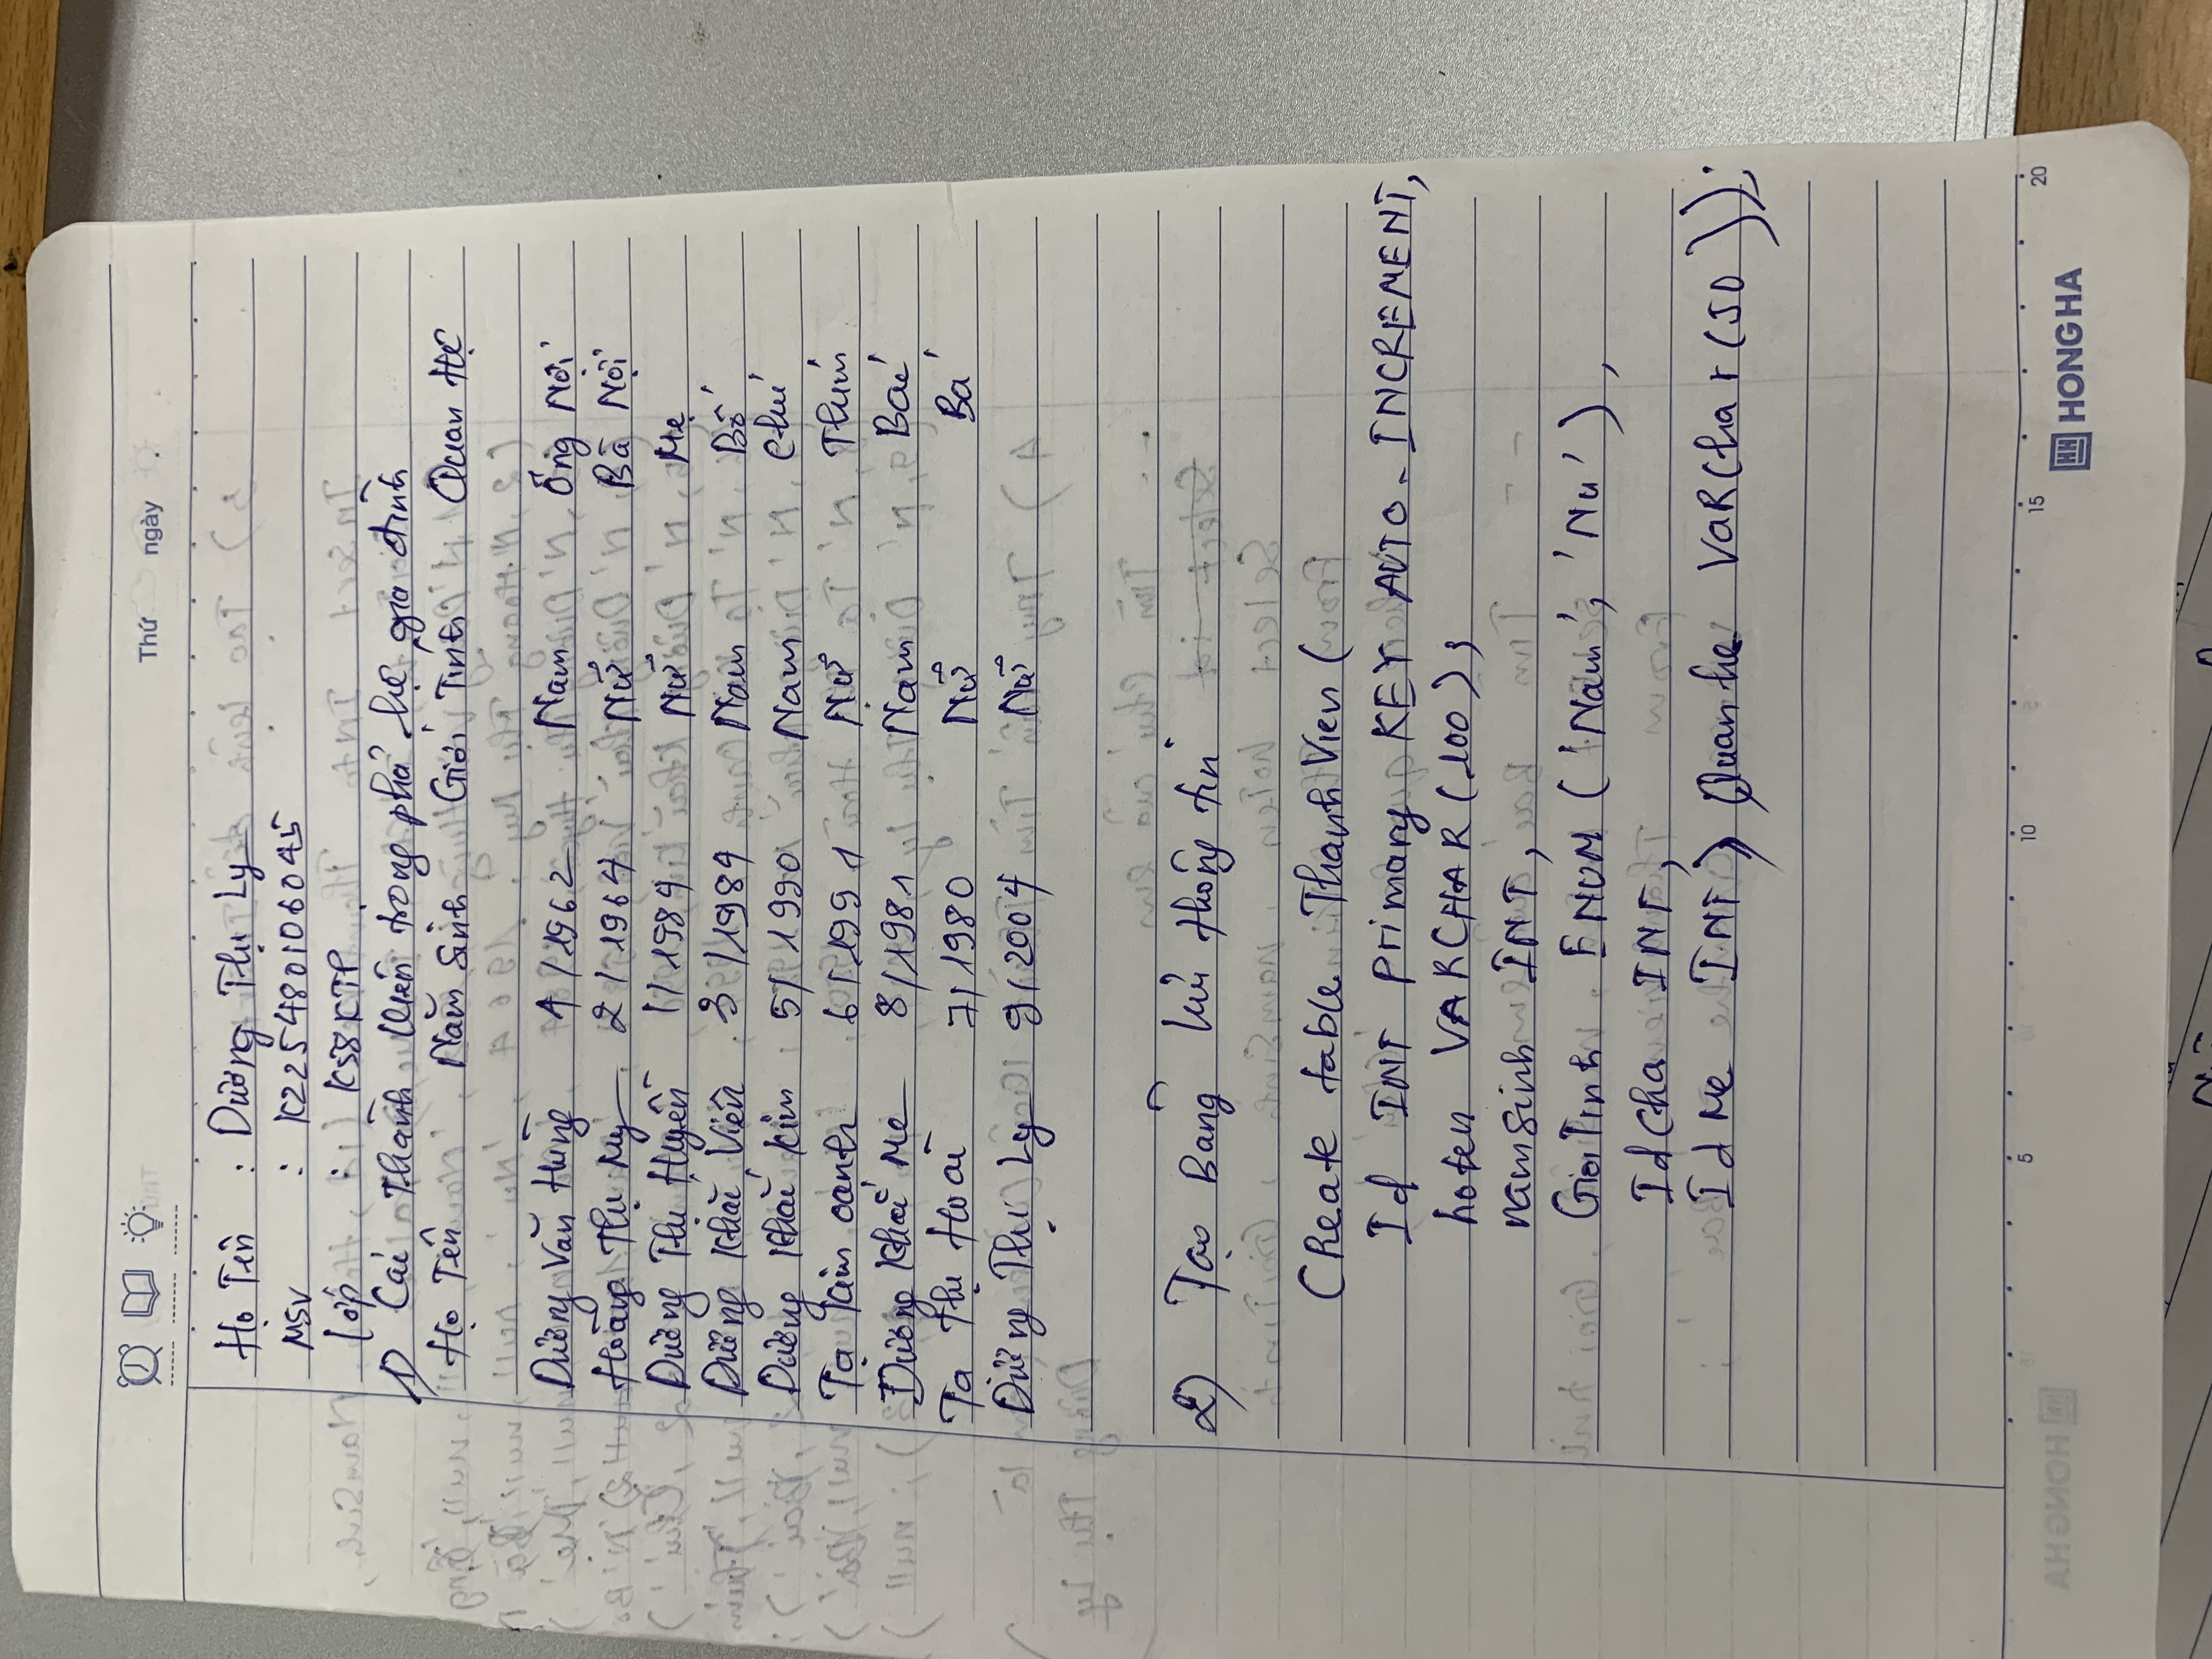 Thứ ngày
Họ Tên : Dương Thị Ly
MSV : K225480106045
Lớp : K58KTP
1) Các Thành Viên trong phả hệ gia đình
Họ Tên Năm Sinh Giới Tính Quan Hệ
Dương Văn Hùng 1/1962 Nam Ông Nội
Hoàng Thị My 2/1964 Nữ Bà Nội
Dương Thị Huyền 1/1984 Nữ Mẹ
Dương Khắc Viên 3/1984 Nam Bố
Dương Khắc Kim 5/1990 Nam Chú
Tạ Kim Oanh 6/1991 Nữ Thím
Dương Khắc Me 8/1981 Nam Bác
Tạ Thị Hoài 7/1980 Nữ Bá
Dương Thị Ly 9/2004 Nữ
2) Tạo Bảng lưu thông tin
Create table ThanhVien (
Id INT primary KEY AUTO_INCREMENT,
hoten VARCHAR(100),
namsinh INT,
GioiTinh ENUM ('Nam', 'Nu'),
IdCha INT,
IdMe INT, Quanhe VARChar(50));
5 10 15 20
HONG HA